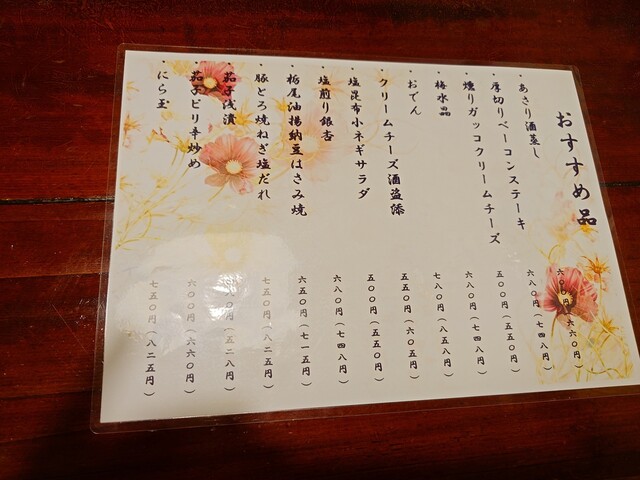 おすすめ品
・あさり酒蒸し 六００円(六六０円)
・厚切りベーコンステーキ 六八０円(七四八円)
・燻りガッコクリームチーズ 五００円(五五０円)
・梅水晶 六八０円(七四八円)
・おでん 七八０円(八五八円)
・クリームチーズ酒盗添 五五０円(六０五円)
・塩昆布小ネギサラダ 五００円(五五０円)
・塩煎り銀杏 六八０円(七四八円)
・栃尾油揚納豆はさみ焼 六五０円(七一五円)
・豚とろ焼ねぎ塩だれ 七五０円(八二五円)
・茄子浅漬 四八０円(五二八円)
・茄子ピリ辛炒め 六００円(六六０円)
・にら玉 七五０円(八二五円)